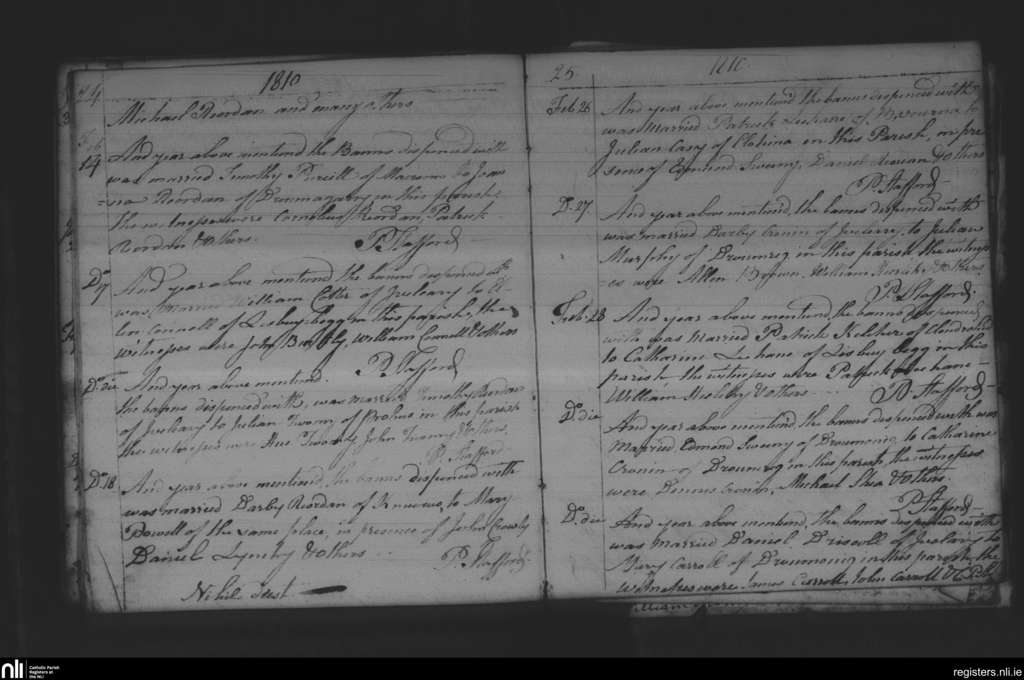 24
1810
Michael Reordan and many others
Feb
14
And year above mentiond the Banns dispenced with
was married Timothy Purcill of Macroom to Joan
=na Reordan of Drumagarry in this parish
the witnesses were Cornelius Riordan, Patrick
Riordan &others.
P. Stafford
Do
17
And year above mentiond the banns dispenced with
was Married William Cotter of Inoleary to El-
len Connell of Lisbuy begg in this parish, the
witnesses were John Buckly, William Connell &others
P. Stafford
Do. die
And year above mentiond.
the banns dispenced with, was married Timothy Riordan
of Inoleary to Julian Twomy of Prohus in this parish
the witnesses were Hue Twomy, John Twomy &others.
P. Stafford
Do. 18
And year above mentioned the banns dispenced with
was married Darby Reordan of to Mary
Powell of the same place, in presence of John Crowly
Daniel Lynchy &others
P. Stafford
Nihil deest
25
1810
Feb. 26
And year above mentiond the banns dispenced with
was Married Patrick of to
Julian Casy of Clohina in this Parish, in pre
sence of Edmond Sweeny, Daniel &others
P. Stafford
Do. 27.
And year above mentiond, the banns dispenced with
was married Darby Cronin of to Julian
Murphy of Droumreig in this parish the witness
=es were Allen William &others
P. Stafford
Feb. 28
And year above mentiond, the banns dispenced
with was Married Patrick Keleher of Clondrohid
to Catharine Lehane of Lisbuy begg in this
parish the witnesses were Patrick Lehane
William &others
P. Stafford
Do. die
And year above mentiond the banns dispenced with was
Married Edmond Sweeny of Droumreig to Catharine
Cronin of Droumreig in this parish, the witnesses
were Denous Cronin, Michael Shea &others
P. Stafford
Do. die
And year above mentiond, the banns dispenced with
was Married Daniel Driscoll of Inoleary to
Mary Carroll of Droumreig in this parish the
witnesses were James Carroll, John Carroll &c P. St
nli
Catholic Parish
Registers at
the NLI
registers.nli.ie